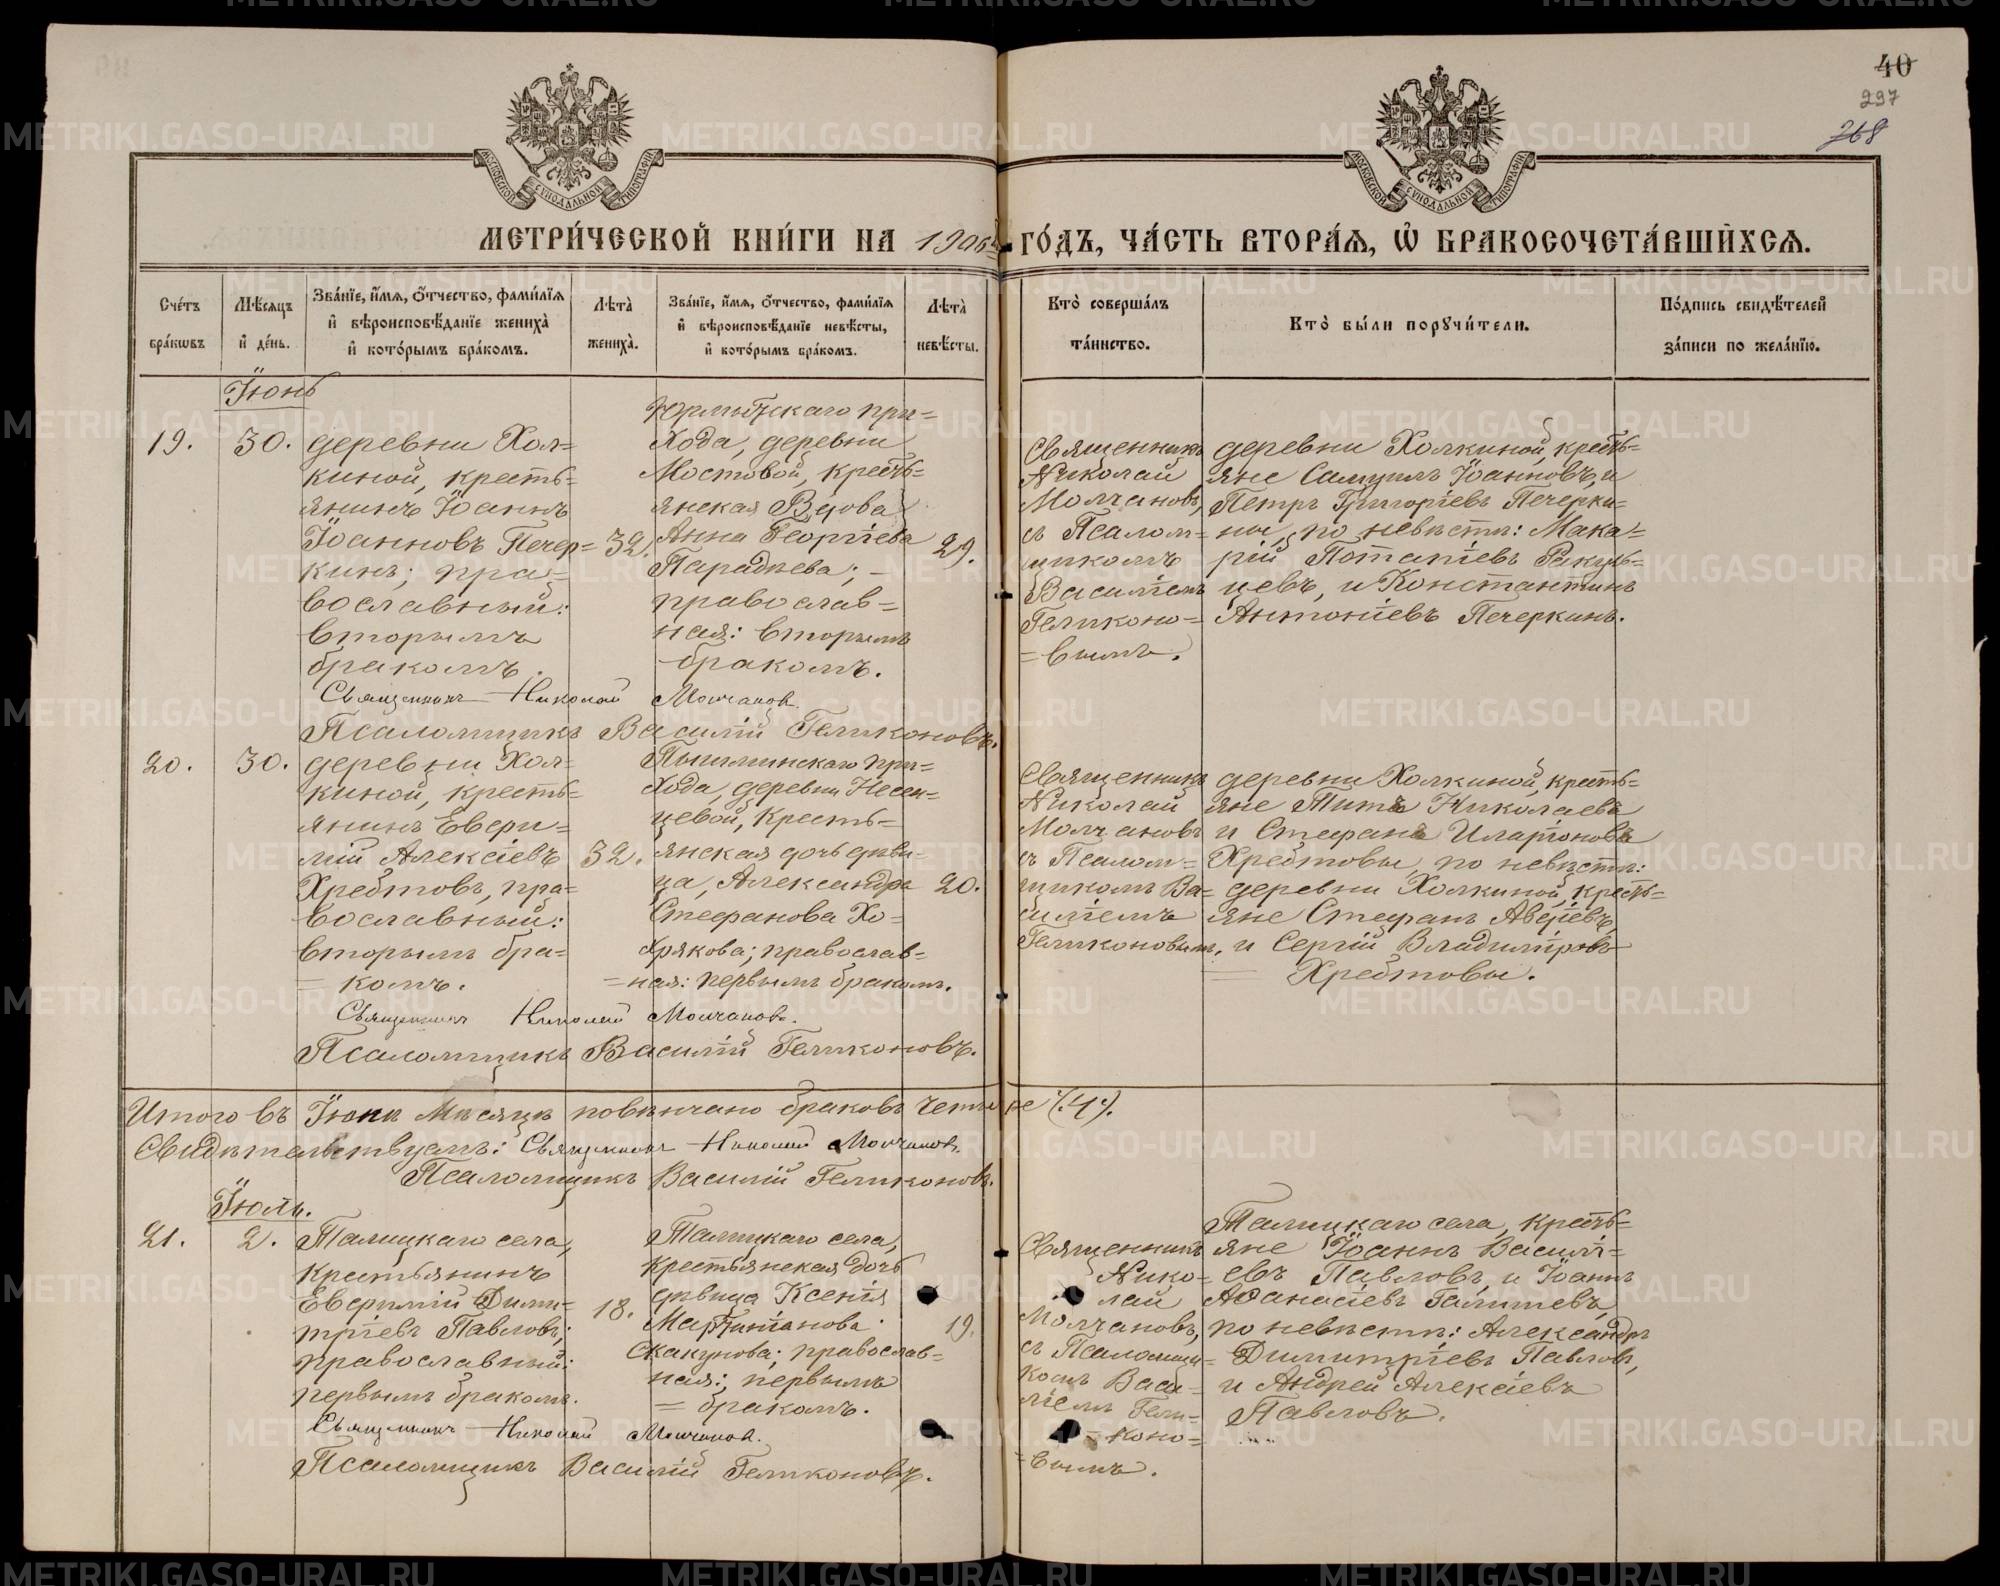 40
297
768
МОСКОВСКОЙ СѴНОДАЛЬНОЙ ТИПОГРАФІИ
МОСКОВСКОЙ СѴНОДАЛЬНОЙ ТИПОГРАФІИ
МЕТРИ́ЧЕСКОЙ КНИ́ГИ НА 1906й ГО́ДЪ, ЧА́СТЬ ВТОРА́Я, Ѽ БРАКОСОЧЕТА́ВШИХСЯ.
Сче́тъ бра́кѡвъ
Мѣ́сяцъ и де́нь.
Зва́нїе, и́мя, о́тчество, фами́лїя и вѣроисповѣ́данїе жениха̀ и кото́рымъ бра́комъ.
Лѣта̀ жениха̀.
Зва́нїе, и́мя, о́тчество, фами́лїя и вѣроисповѣ́данїе невѣ́сты, и кото́рымъ бра́комъ.
Лѣта̀ невѣ́сты.
Кто̀ соверша́лъ та́инство.
Кто̀ бы́ли порꙋчи́тели.
По́дпись свидѣ́телей за́писи по жела́нїю.
Іюнь
19.
30.
деревни Хол=
киной, кресть=
янинъ Іоаннъ
Іоанновъ Печер=
кинъ; пра=
вославный:
вторымъ
бракомъ.
32.
Юрмытскаго при=
хода, деревни
Мостовой, кресть=
янская вдова
Анна Георгіева
Парадѣева; –
православ=
ная: вторымъ
бракомъ.
29.
Священникъ
Николай
Молчановъ,
съ Псалом=
щикомъ
Василіемъ
Геликоно=
=вымъ.
деревни Холкиной, кресть=
яне Самуилъ Іоанновъ, и
Петръ Григоріевъ Печерки=
ны, по невѣстѣ: Мака=
рій Потапіевъ Ракуль=
цевъ, и Константинъ
Антоніевъ Печеркинъ.
Священникъ Николай Молчановъ.
Псаломщикъ Василій Геликоновъ.
20.
30.
деревни Хол=
киной, кресть=
янинъ Евѳи=
мій Алексіевъ
Хребтовъ, пра=
вославный:
вторымъ бра=
=комъ.
32.
Пышминскаго при=
хода, деревни Несен=
цевой, кресть=
янская дочь дѣви=
ца, Александра
Стефанова Хо=
хрякова; православ=
=ная: первымъ бракомъ.
20.
Священникъ
Николай
Молчановъ
съ Псалом=
щикомъ Ва=
силіемъ
Геликоновымъ,
деревни Холкиной, кресть=
яне Титъ Николаевъ
и Стефанъ Иларіоновъ
Хребтовы, по невѣстѣ:
деревни Холкиной, кресть=
яне Стефанъ Авдіевъ,
и Сергій Владиміровъ
= Хребтовы.
Священникъ Николай Молчановъ.
Псаломщикъ Василій Геликоновъ.
Итого въ Іюнѣ мѣсяцѣ повѣнчано браковъ четыре (4).
Свидѣтельствуемъ: Священникъ Николай Молчановъ.
Псаломщикъ Василій Геликоновъ.
Іюль.
21.
2.
Талицкаго села,
крестьянинъ
Евѳимій Дими=
тріевъ Павловъ;
православный:
первымъ бракомъ.
18.
Талицкаго села,
крестьянская дочь
дѣвица Ксенія
Мартиніанова
Скакунова; православ=
ная: первымъ
=бракомъ.
19.
Священникъ
Нико=
лай
Молчановъ,
съ Псаломщи=
комъ Васи=
ліемъ Гели=
=коно=
=вымъ.
Талицкаго села, кресть=
яне Іоаннъ Василі=
евъ Павловъ, и Іоаннъ
Аѳанасіевъ Галишевъ,
по невѣстѣ: Александръ
Димитріевъ Павловъ,
и Андрей Алексіевъ
Павловъ.
Священникъ Николай Молчановъ.
Псаломщикъ Василій Геликоновъ.
METRIKI.GASO-URAL.RU